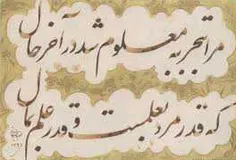 مرا بتجربه معلوم شد در آخر حال
که قدر مرد بعلمست و قدر علم بمال